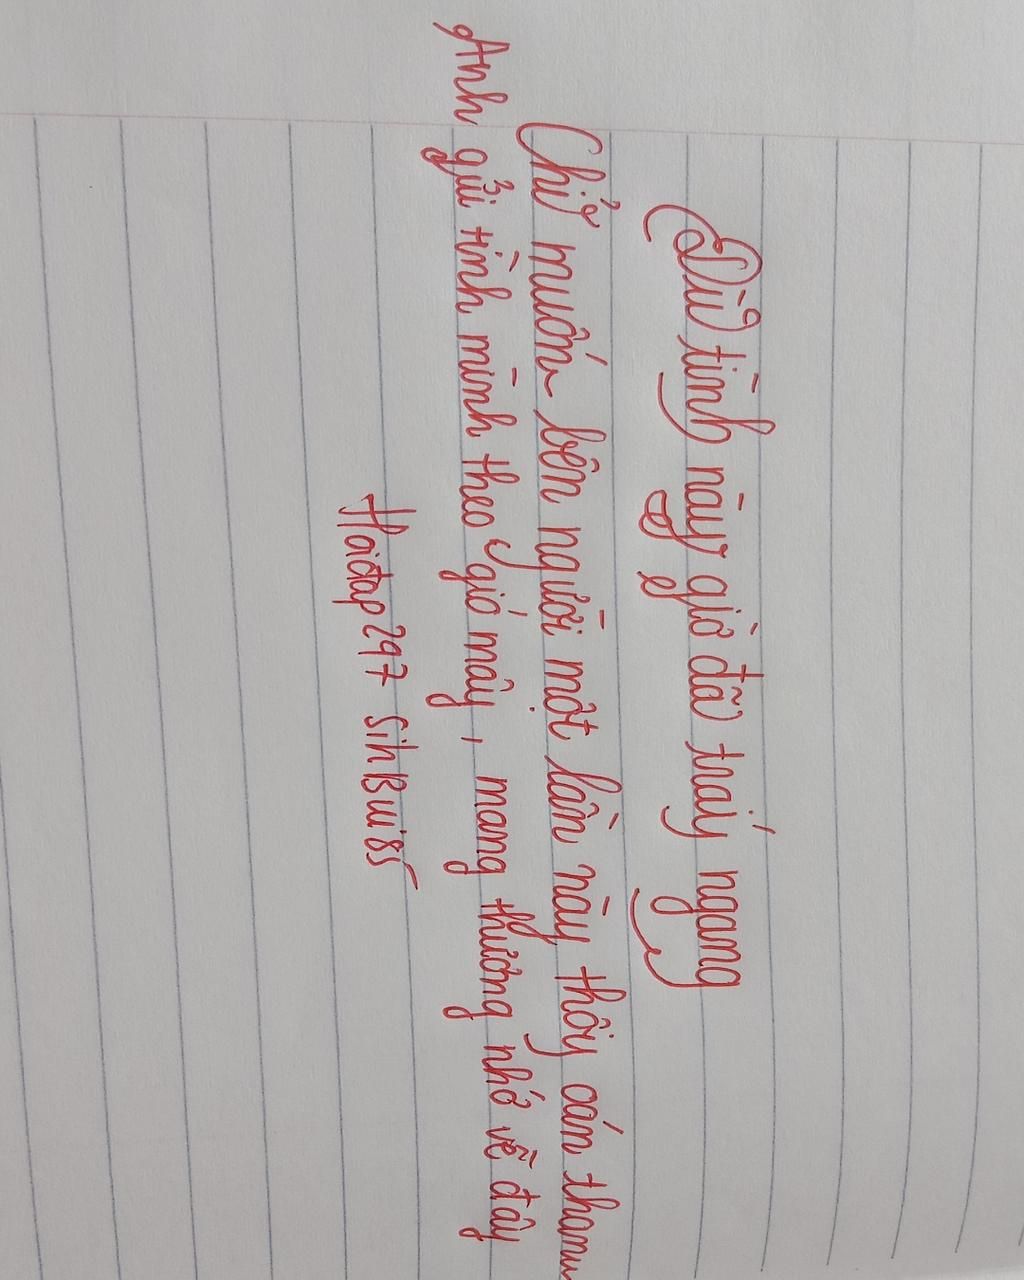 Dù tình này giờ đã trái ngang
Chỉ muốn bên người một lần này thôi oán than
Anh gửi tình mình theo gió mây, mang thương nhớ về đây
Hoidap247 sihBui85